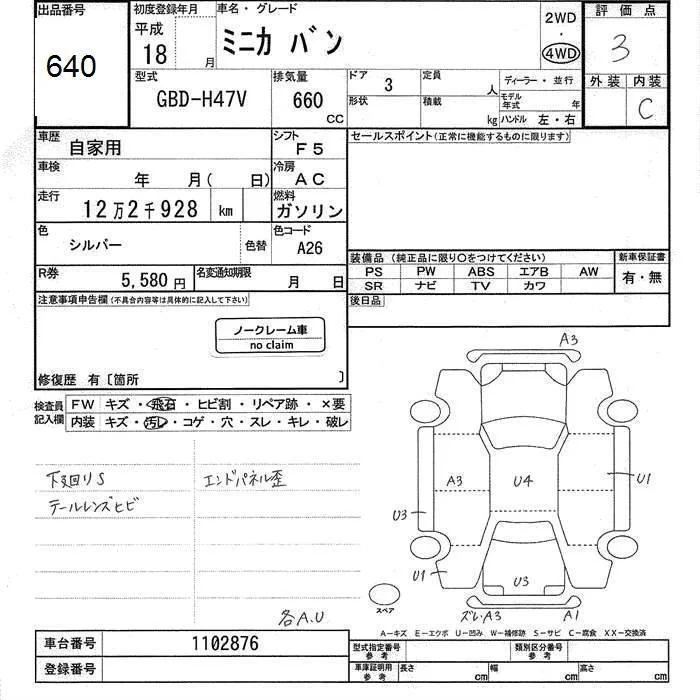 出品番号
640
初度登録年月
平成
18 月
車名・グレード
ミニカ バン
2WD
・
4WD
評価点
3
型式
GBD-H47V
排気量
660
CC
ドア
3
定員
人
ディーラー・並行
外装 内装
C
形状
積載
kg
モデル年式 年
ハンドル 左・右
車歴
自家用
シフト
F5
セールスポイント(正常に機能するものに限ります)
車検
年 月( 日)
冷房
AC
走行
12万2千928 km
燃料
ガソリン
色
シルバー
色替
色コード
A26
装備品 (純正品に限り○をつけてください)
新車保証書
PS PW ABS エアB AW
有・無
SR ナビ TV カワ
R券
5,580 円
名変通知期限
月 日
後日品
注意事項申告欄(不具合内容等は具体的に記入して下さい)
ノークレーム車
no claim
修復歴 有〔箇所 〕
検査員記入欄
FW キズ・飛石・ヒビ割・リペア跡・×要
内装 キズ・汚れ・コゲ・穴・スレ・キレ・破レ
下廻りS
エンドパネル歪
テールレンズヒビ
各A.U
A3
A3
U4
U1
U3
U1
U3
スペア
ズレ・A3
A1
A-キズ E-エクボ U-凹み W-補修跡 S-サビ C-腐食 XX-交換済
車台番号
1102876
登録番号
型式指定番号
参考
類別区分番号
参考
車庫証明用
参考
長さ
cm
幅
cm
高さ
cm